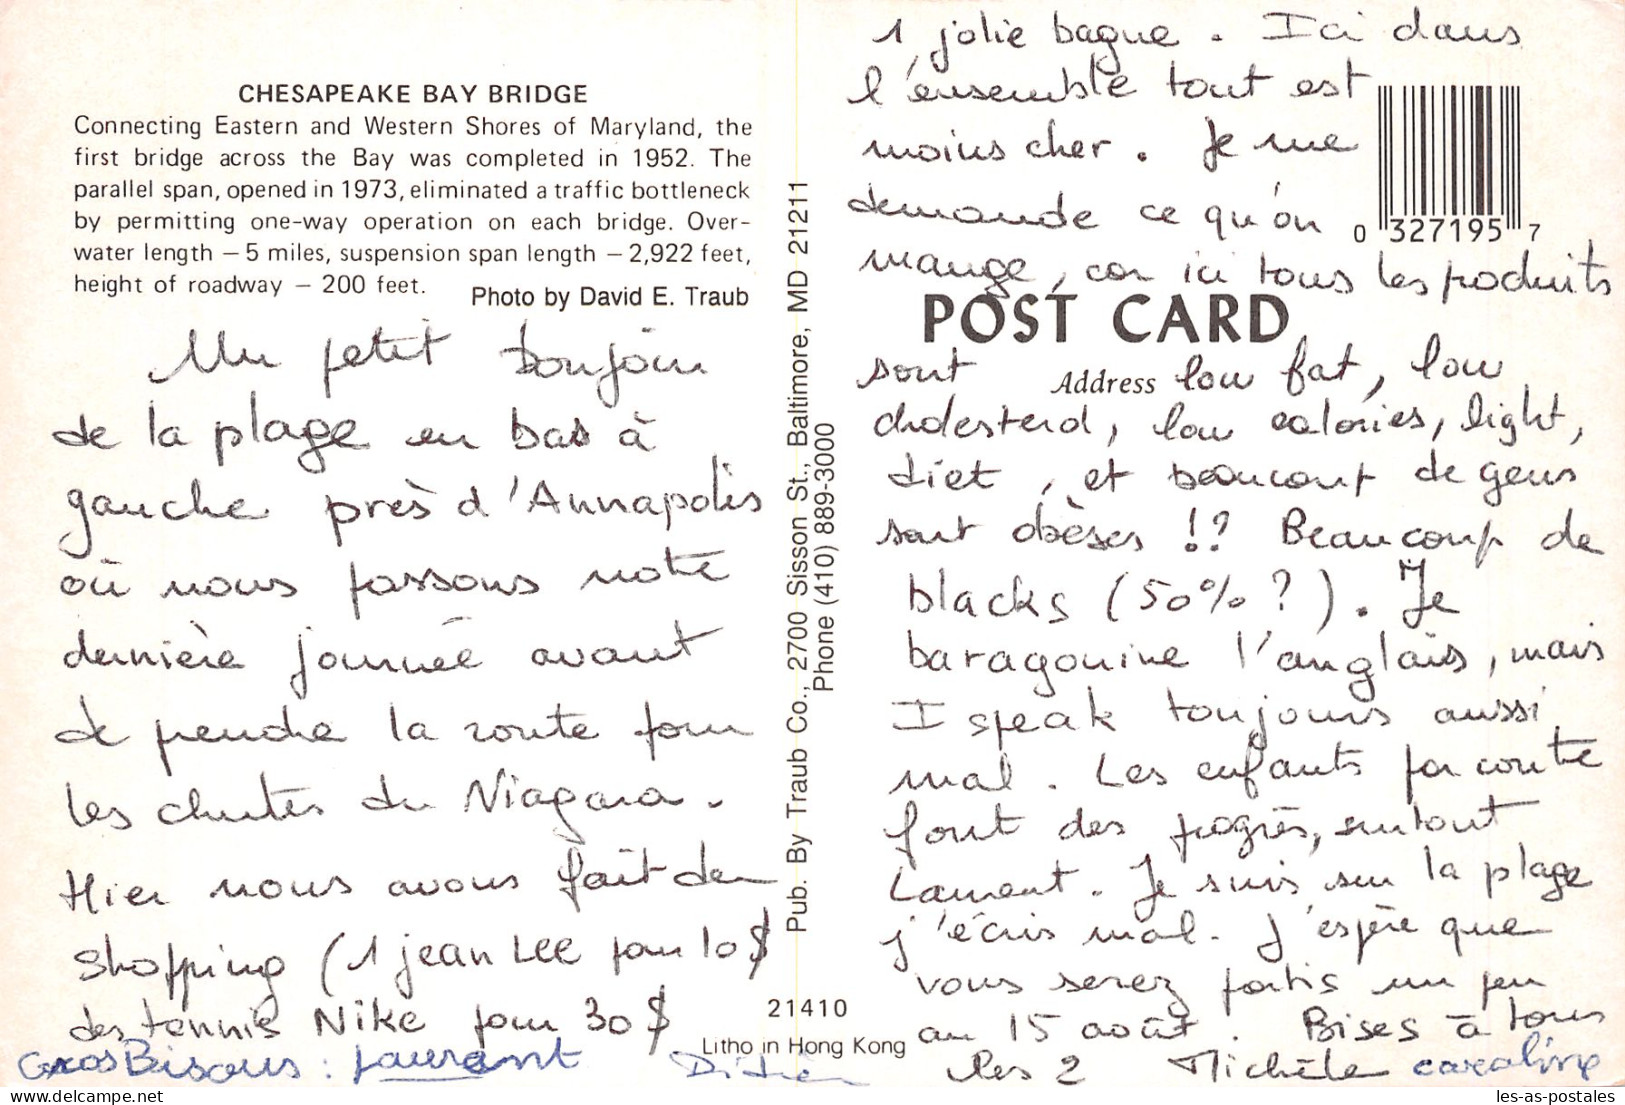 CHESAPEAKE BAY BRIDGE
Connecting Eastern and Western Shores of Maryland, the
first bridge across the Bay was completed in 1952. The
parallel span, opened in 1973, eliminated a traffic bottleneck
by permitting one-way operation on each bridge. Over-
water length – 5 miles, suspension span length – 2,922 feet,
height of roadway – 200 feet.
Photo by David E. Traub
Un petit bonjour
de la plage en bas à
gauche près d'Annapolis
où nous passons notre
dernière journée avant
de prendre la route pour
les chutes du Niagara.
Hier nous avons fait du
shopping (1 jean LEE pour 10$
des tennis Nike pour 30$
Gros Bisous : Laurent
Didier
Pub. By Traub Co., 2700 Sisson St., Baltimore, MD 21211
Phone (410) 889-3000
21410
Litho in Hong Kong
1 jolie bague. Ici dans
l'ensemble tout est
moins cher. Je me
demande ce qu'on
mange, car ici tous les produits
0 327195 7
POST CARD
Address
sont low fat, low
cholesterol, low calories, light,
diet, et beaucoup de gens
sont obèses !? Beaucoup de
blacks (50% ?). Je
baragouine l'anglais, mais
I speak toujours aussi
mal. Les enfants par contre
font des progrès, surtout
Laurent. Je suis sur la plage
j'écris mal. J'espère que
vous serez partis un peu
au 15 août. Bises à tous
les 2 Michèle caroline
les-as-postales